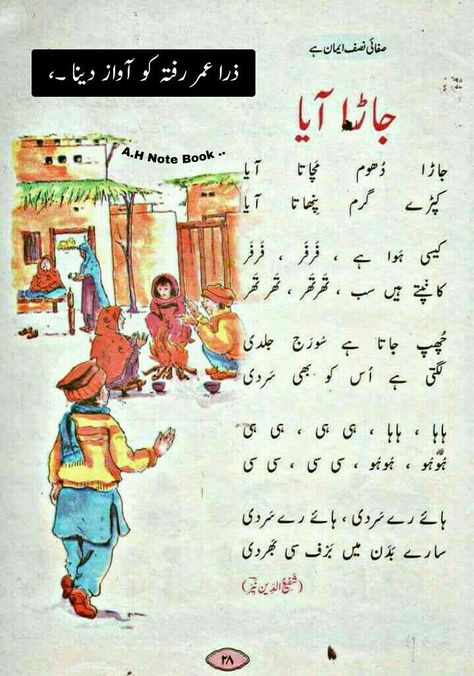 صفائی نصف ایمان ہے
ذرا عمر رفتہ کو آواز دینا ۔،
جاڑا آیا
A.H Note Book ..
جاڑا دُھوم مَچاتا آیا
کپڑے گرم پنہاتا آیا
کیسی ہَوا ہے ، فَرفَر ، فَرفَر
کانپتے ہیں سب ، تَھرتَھر ، تَھر تَھر
چُھپ جاتا ہے سُورَج جلدی
لگتی ہے اُس کو بھی سَردی
ہاہا ، ہاہا ، ہی ہی ، ہی ہی
ہُوہُو ، ہُوہُو ، سی سی ، سی سی
ہائے رے سَردی ، ہائے رے سَردی
سارے بَدَن میں بَرَف سی بَھردی
(شفیع الدین نیّر)
۲۸